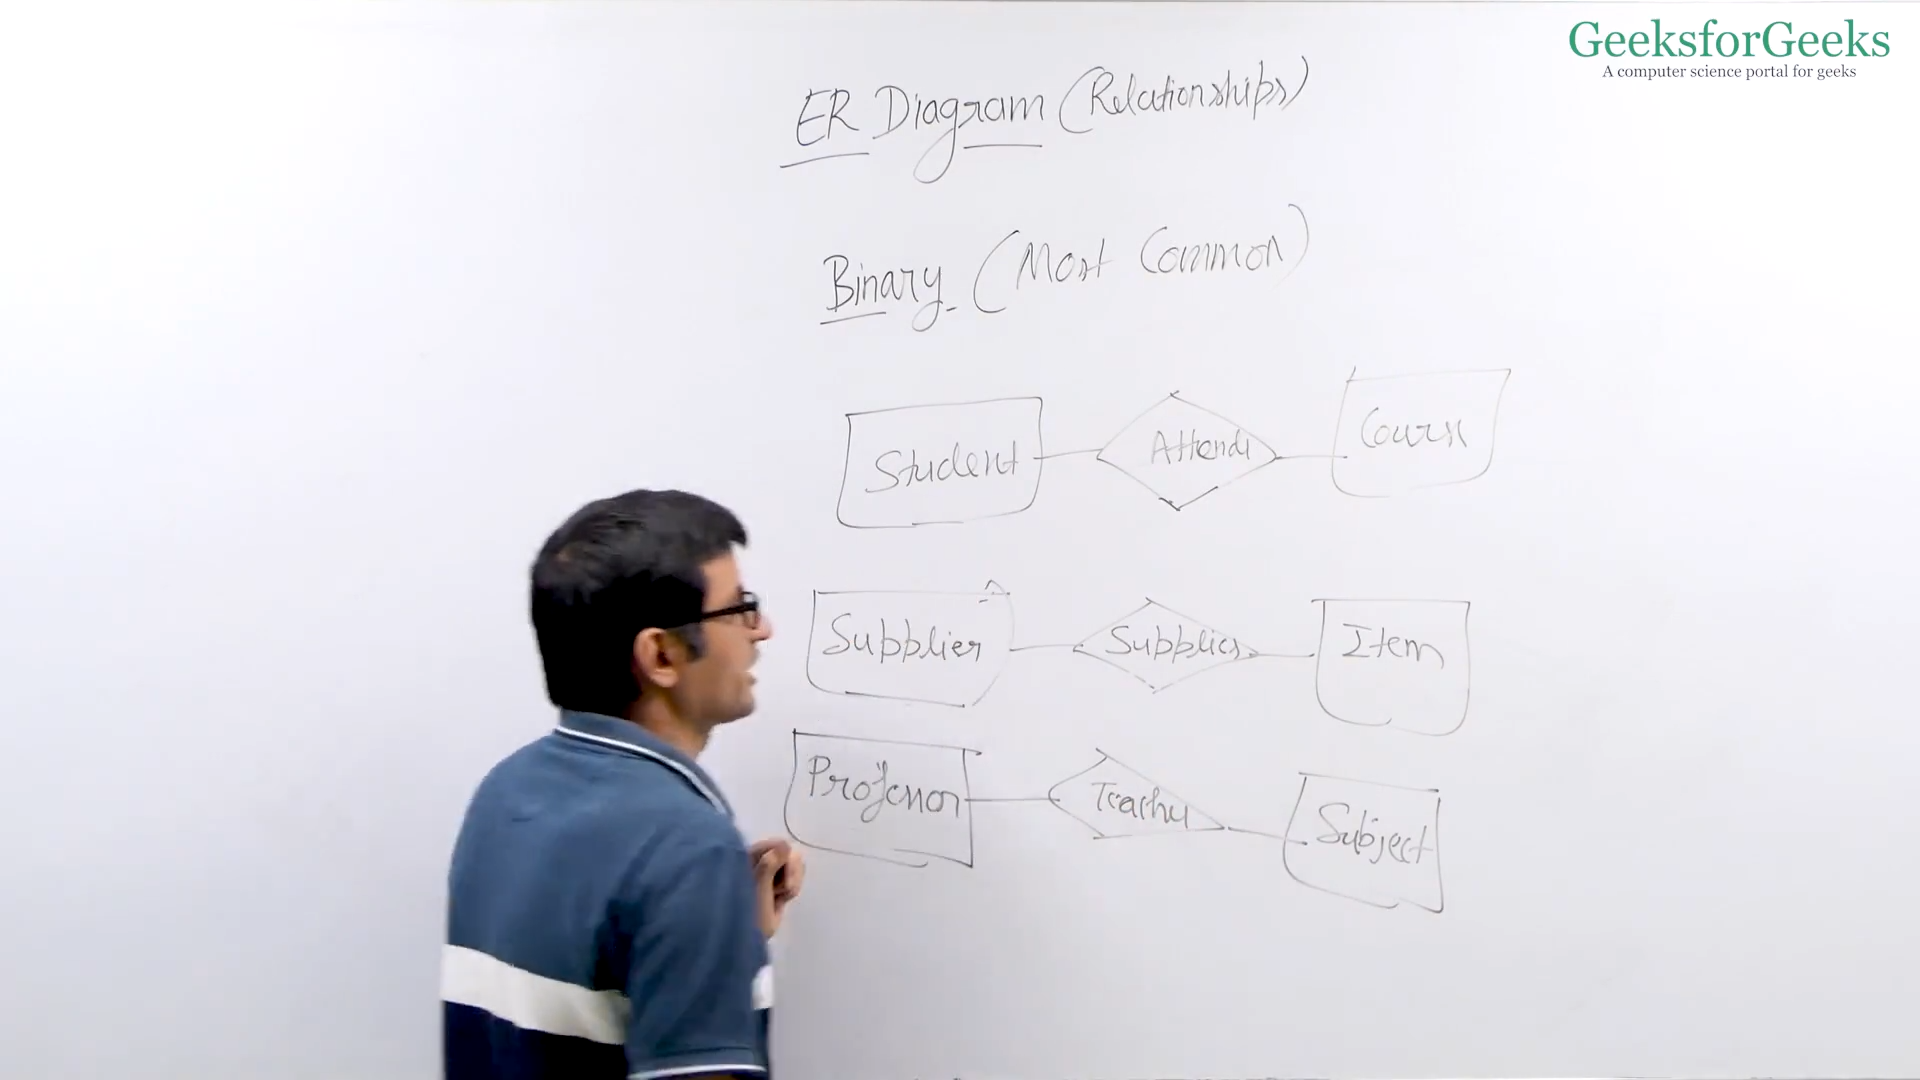 GeeksforGeeks
A computer science portal for geeks
ER Diagram (Relationships)
Binary (Most Common)
Student Attends Course
Supplier Supplies Item
Professor Teaches Subject